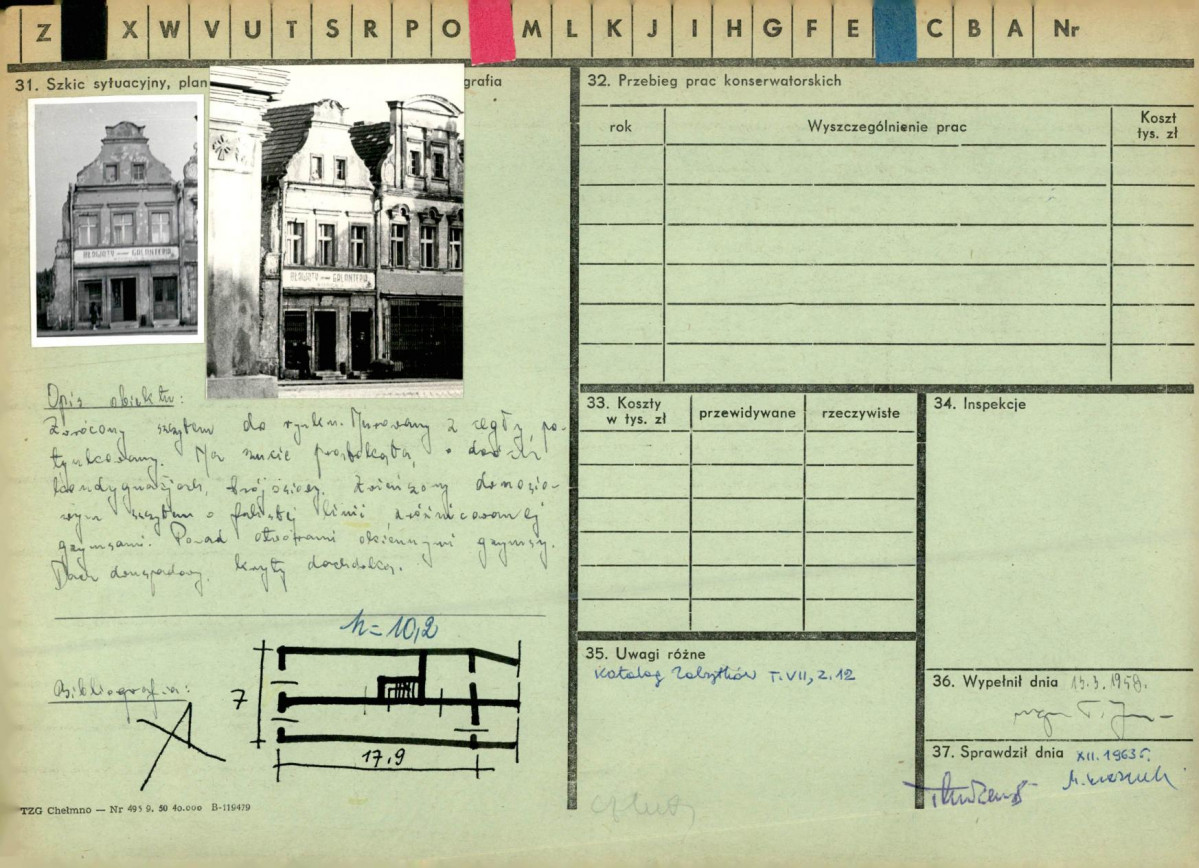 Z X W V U T S R P O M L K J I H G F E C B A Nr
31. Szkic sytuacyjny, plan grafia
BŁAWATY — GALANTERIA
BŁAWATY — GALANTERIA
Opis obiektu:
Zwrócony szczytem do rynku. Murowany z cegły, po-
tynkowany. Na rzucie prostokąta, o dwóch
kondygnacjach, trójosiowy. Zwieńczony
szczytem o falistej linii
gzymsami. Ponad otworami okiennymi gzymsy.
Dach dwuspadowy, kryty dachówką.
h = 10,2
7
17,9
Bibliografia:
TZG Chełmno — Nr 495 9. 50 40.000 B-119479
32. Przebieg prac konserwatorskich
rok Wyszczególnienie prac Koszt tys. zł
33. Koszty w tys. zł przewidywane rzeczywiste
34. Inspekcje
35. Uwagi różne
Katalog Zabytków T. VII, z. 12
36. Wypełnił dnia 15.3.1958.
37. Sprawdził dnia XII. 1963 r.